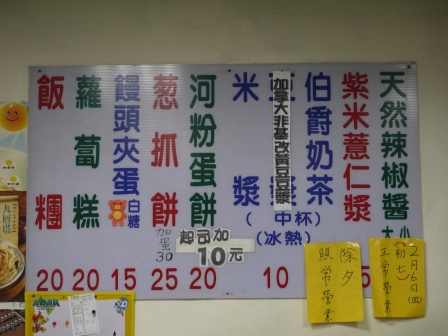 天然辣椒醬
大 小
紫米薏仁漿
5
伯爵奶茶
豆漿
加拿大非基改黃豆豆漿
(中杯)
(冰熱)
10
米漿
河粉蛋餅
20
蔥抓餅
加蛋
30
25
起司加
10元
饅頭夾蛋
白糖
15
蘿蔔糕
20
飯糰
20
除夕
照常營業
2月16日(四)
(初七)
正常營業
九層塔